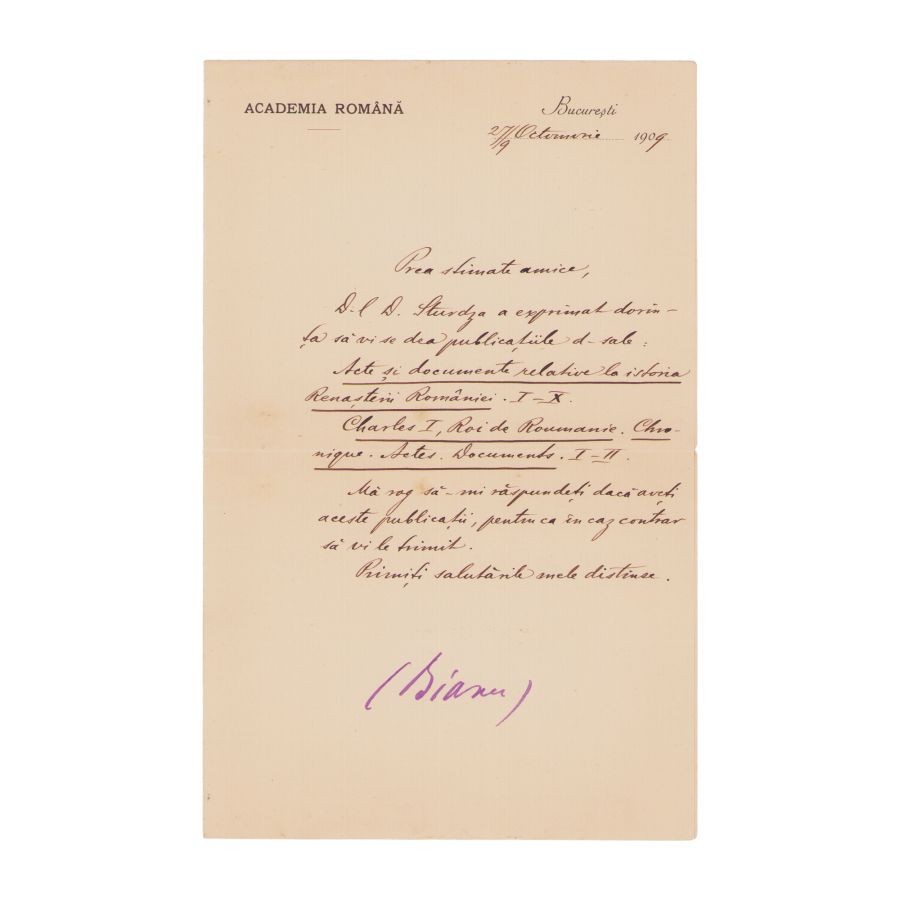 ACADEMIA ROMÂNĂ
București
Octomvrie 1909
Prea stimate amice,
D-l D. Sturdza a exprimat dorin-
ța să vi se dea publicațiile d-sale:
Acte și documente relative la istoria
Renașterii României. I-X.
Charles I, Roi de Roumanie. Chro-
nique. Actes. Documents. I-II.
Mă rog să-mi răspundeți dacă aveți
aceste publicații, pentru ca în caz contrar
să vi le trimit.
Primiți salutările mele distinse.
(Bianu)